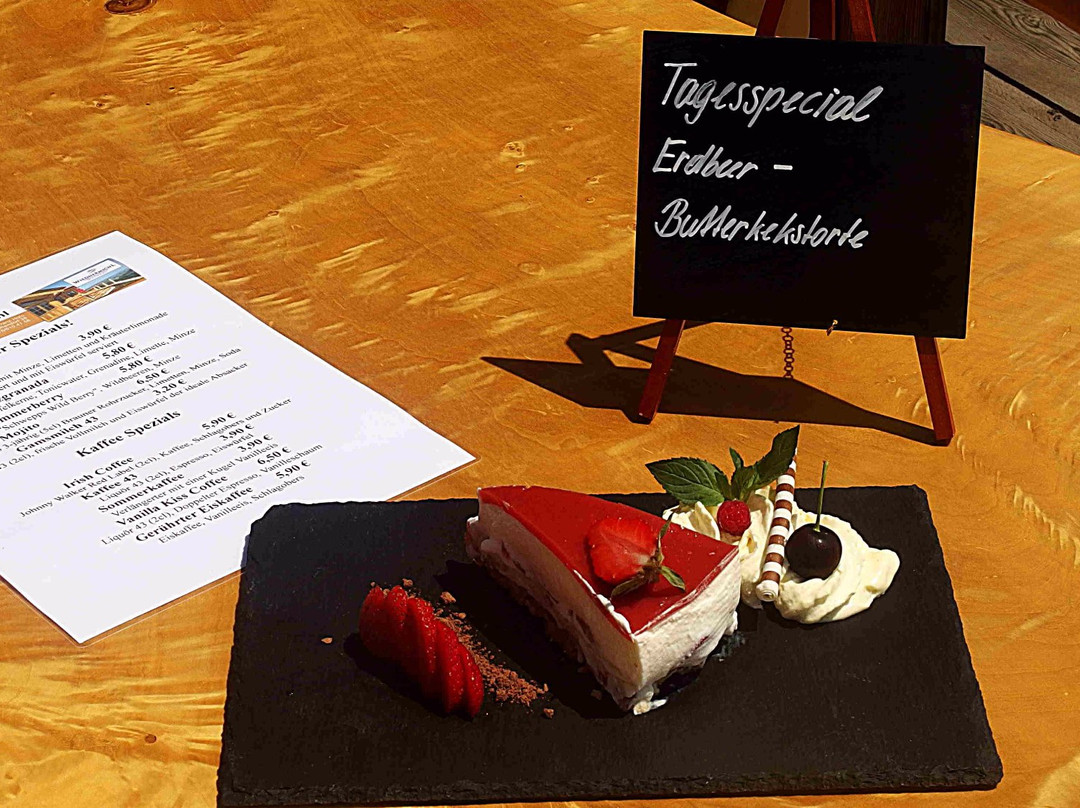 Tagesspecial
Erdbeer -
Butterkekstorte
er Spezials!
3,90 €
mit Minze, Limetten und Kräuterlimonade
ert und mit Eiswürfel serviert
5,80 €
granada
felkerne, Tonicwater, Grenadine, Limette, Minze
5,80 €
mmerberry
Schwepps Wild Berry - Wildbeeren, Minze
6,50 €
Mojito
3-jährig (5cl) Brauner Rohrzucker, Limetten, Minze, Soda
3,20 €
Gamsmilch 43
3 (2cl), frische Vollmilch und Eiswürfel der ideale Absacker
Kaffee Spezials
Irish Coffee 5,90 €
Johnny Walker Red Label (2cl), Kaffee, Schlagobers und Zucker
Kaffee 43 3,90 €
Liquör 43 (2cl), Espresso, Eiswürfel
Sommerkaffee 3,90 €
Verlängerter mit einer Kugel Vanilleeis
Vanilla Kiss Coffee 6,50 €
Liquör 43 (2cl), Doppelter Espresso, Vanilleschaum
Gerührter Eiskaffee 5,90 €
Eiskaffee, Vanilleeis, Schlagobers